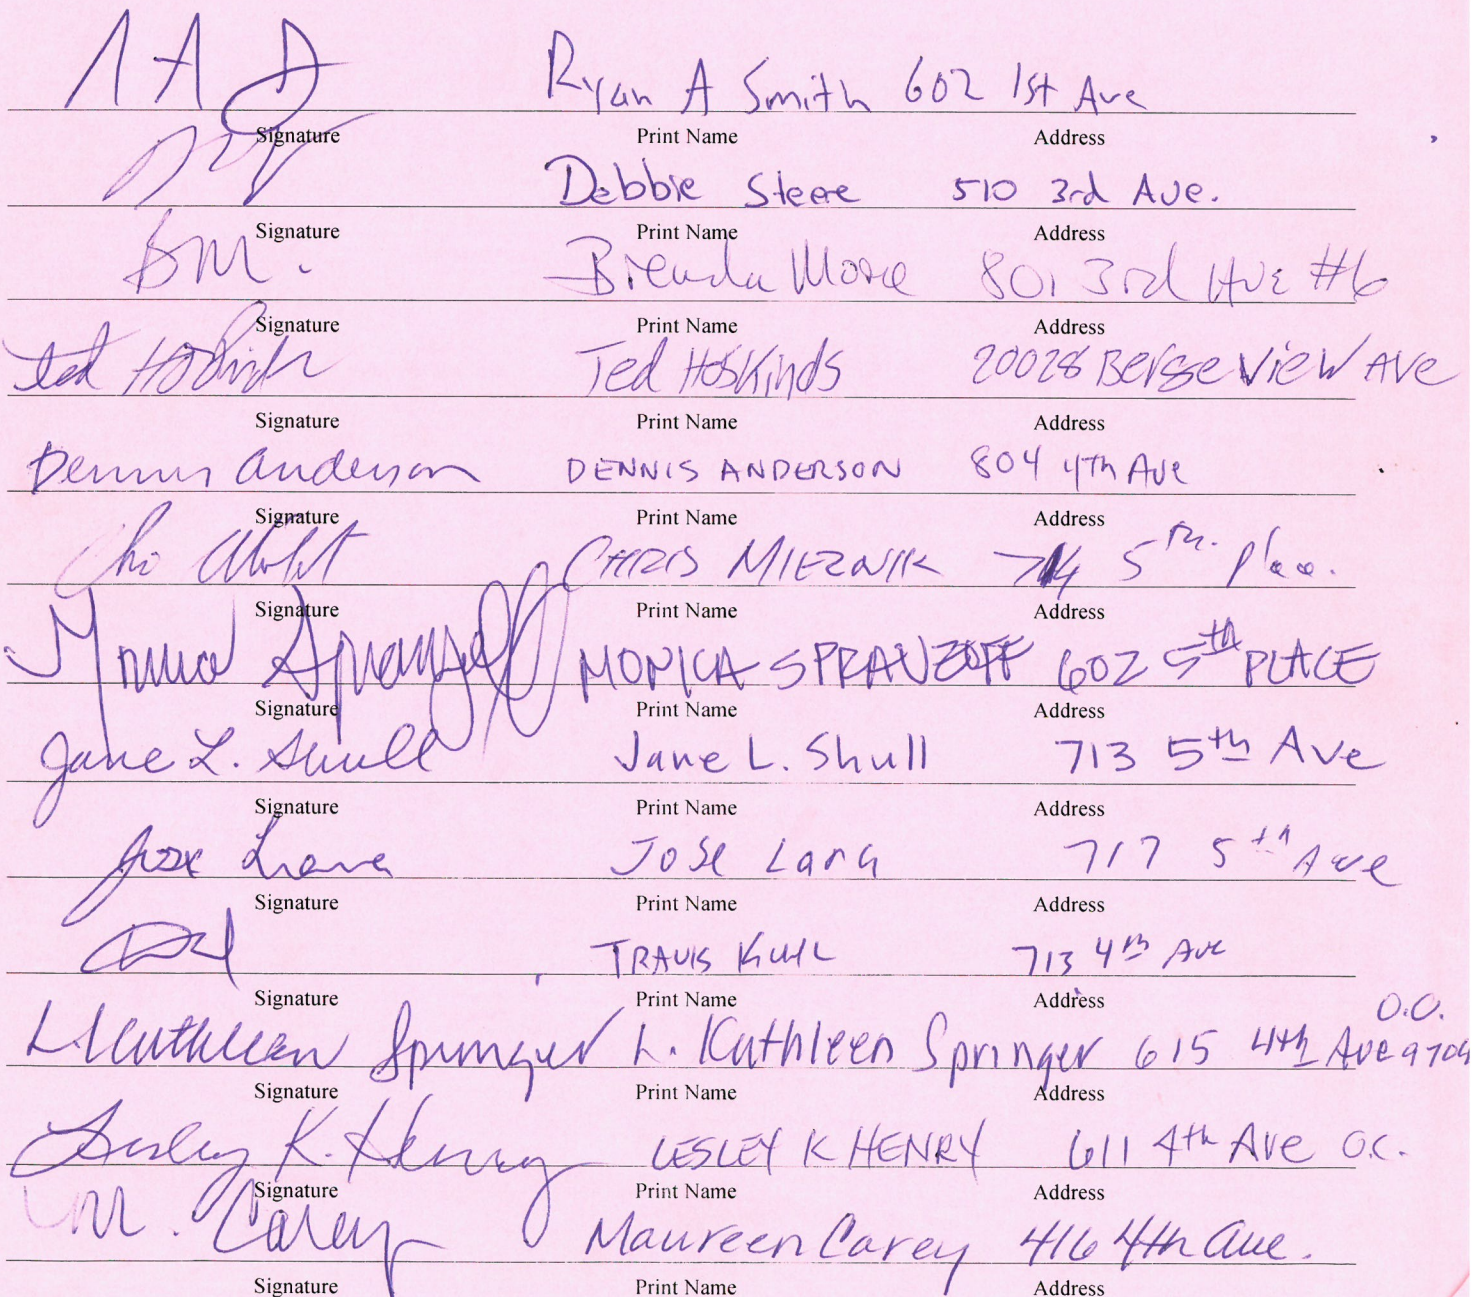 Ryan A Smith 602 1st Ave
Signature Print Name Address
Debbie Steere 510 3rd Ave.
Signature Print Name Address
BM. Brenda More 801 3rd Ave #6
Signature Print Name Address
Ted Hoskinds Ted Hoskinds 20028 View Ave
Signature Print Name Address
Dennis Anderson DENNIS ANDERSON 804 4th Ave
Signature Print Name Address
CHRIS MIEZNIK 714 5th Place.
Signature Print Name Address
Monica MONICA 602 5th PLACE
Signature Print Name Address
Jane L. Shull Jane L. Shull 713 5th Ave
Signature Print Name Address
Jose Lara Jose Lara 717 5th Ave
Signature Print Name Address
TRAVIS KUHL 713 4th Ave
Signature Print Name Address
O.C.
L. Kathleen Springer L. Kathleen Springer 615 4th Ave 9704
Signature Print Name Address
Lesley K. Henry LESLEY K HENRY 611 4th Ave O.C.
Signature Print Name Address
M. Carey Maureen Carey 416 4th Ave.
Signature Print Name Address